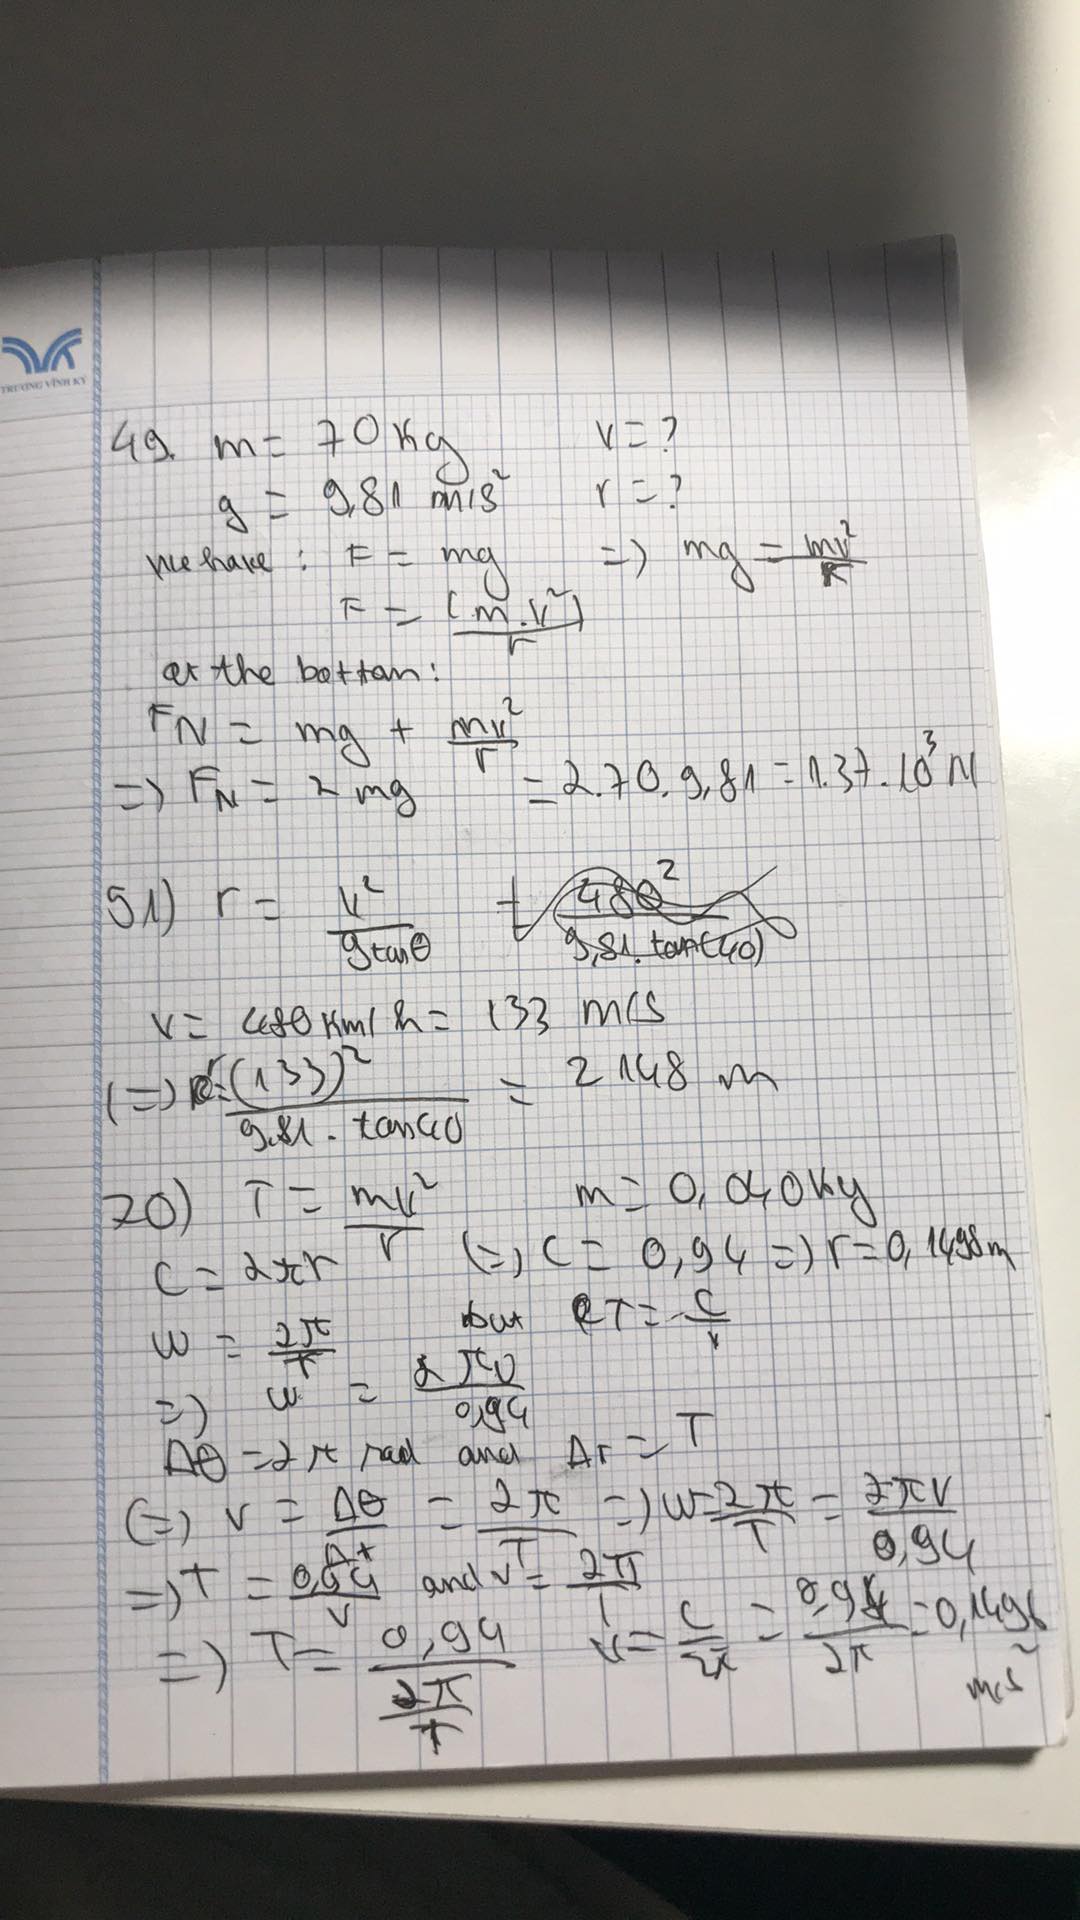 TRƯƠNG VĨNH KÝ
49. m = 70 kg v = ?
g = 9,81 m/s² r = ?
we have : F = mg => mg = mv²/r
F = (m.v²)/r
at the bottom :
FN = mg + mv²/r
=> FN = 2 mg = 2.70.9,81 = 1.37.10³ N
51) r = v²/gtanθ 480²/9,81.tan(40)
v = 480 km/h = 133 m/s
(=) r = (133)²/9.81.tan40 = 2148 m
70) T = mv²/r m = 0,040 kg
C = 2πr (=) C = 0,94 => r = 0,1498m
w = 2π/T but T = C/v
=) w = 2πv/0,94
Δθ = 2π rad and Δt = T
(=) v = Δθ/Δt = 2π/T => w = 2π/T = 2πv/0,94
=> T = 0,94/v and v = 2π/T
=) T = 0,94/(2π/T) v = C/2π = 0,94/2π = 0,1496
m/s